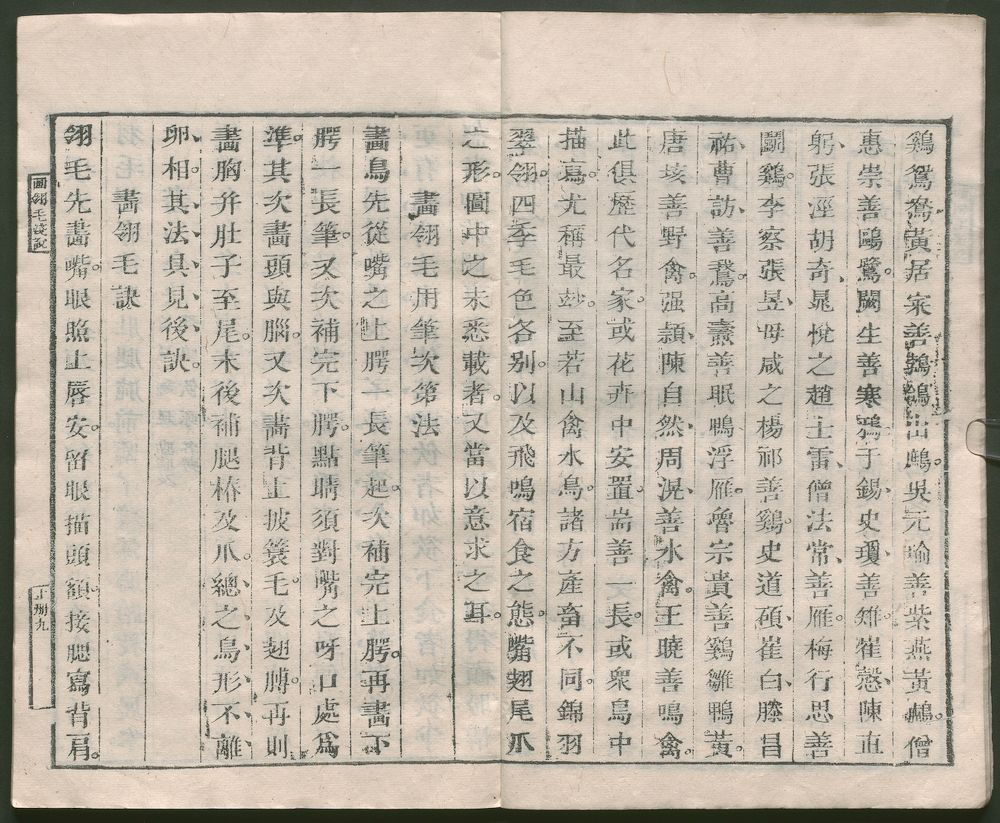 鷄鴛鴦黃居寀善鵓鴿山鷓吳元瑜善紫燕黃鸝僧
惠崇善鷗鷺關生善寒鴉于錫史瓊善雉崔慤陳直
躬張涇胡奇晁悅之趙士雷僧法常善雁梅行思善
鬭鷄李察張昱毋咸之楊祁善鷄史道碩崔白滕昌
祐曹訪善鵞高燾善眠鴨浮雁魯宗貴善鷄雛鴨黃
唐垓善野禽强頴陳自然周滉善水禽王曉善鳴禽
此俱歷代名家或花卉中安置耑善一長或衆鳥中
描寫尤稱最玅至若山禽水鳥諸方產畜不同錦羽
翠翎四季毛色各別以及飛鳴宿食之態嘴翅尾爪
之形圖中之未悉載者又當以意求之耳
畫翎毛用筆次第法
畫鳥先從嘴之上腭一長筆起次補完上腭再畫下
腭一長筆又次補完下腭點睛須對嘴之呀口處爲
準其次畫頭與腦又次畫背上披簑毛及翅膊再則
畫胸幷肚子至尾末後補腿樁及爪總之鳥形不離
卵相其法具見後訣
畫翎毛訣
翎毛先畫嘴眼照上唇安留眼描頭額接腮寫背肩
畫翎毛淺說
上卅九